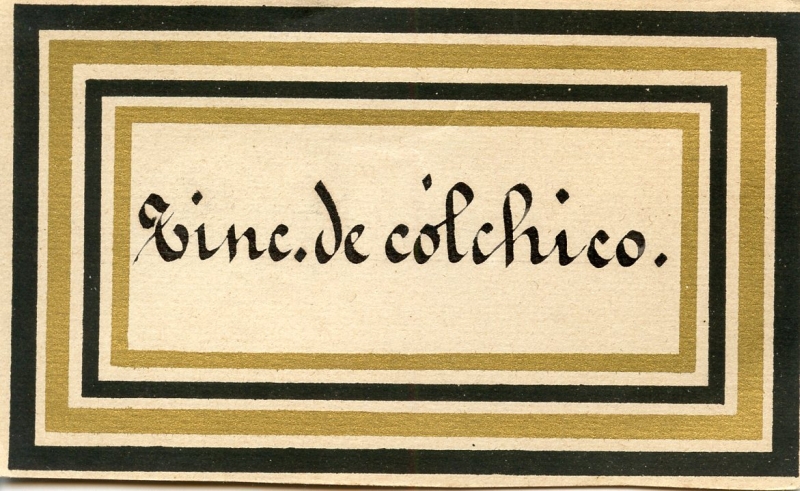 Tinc. de cólchico.